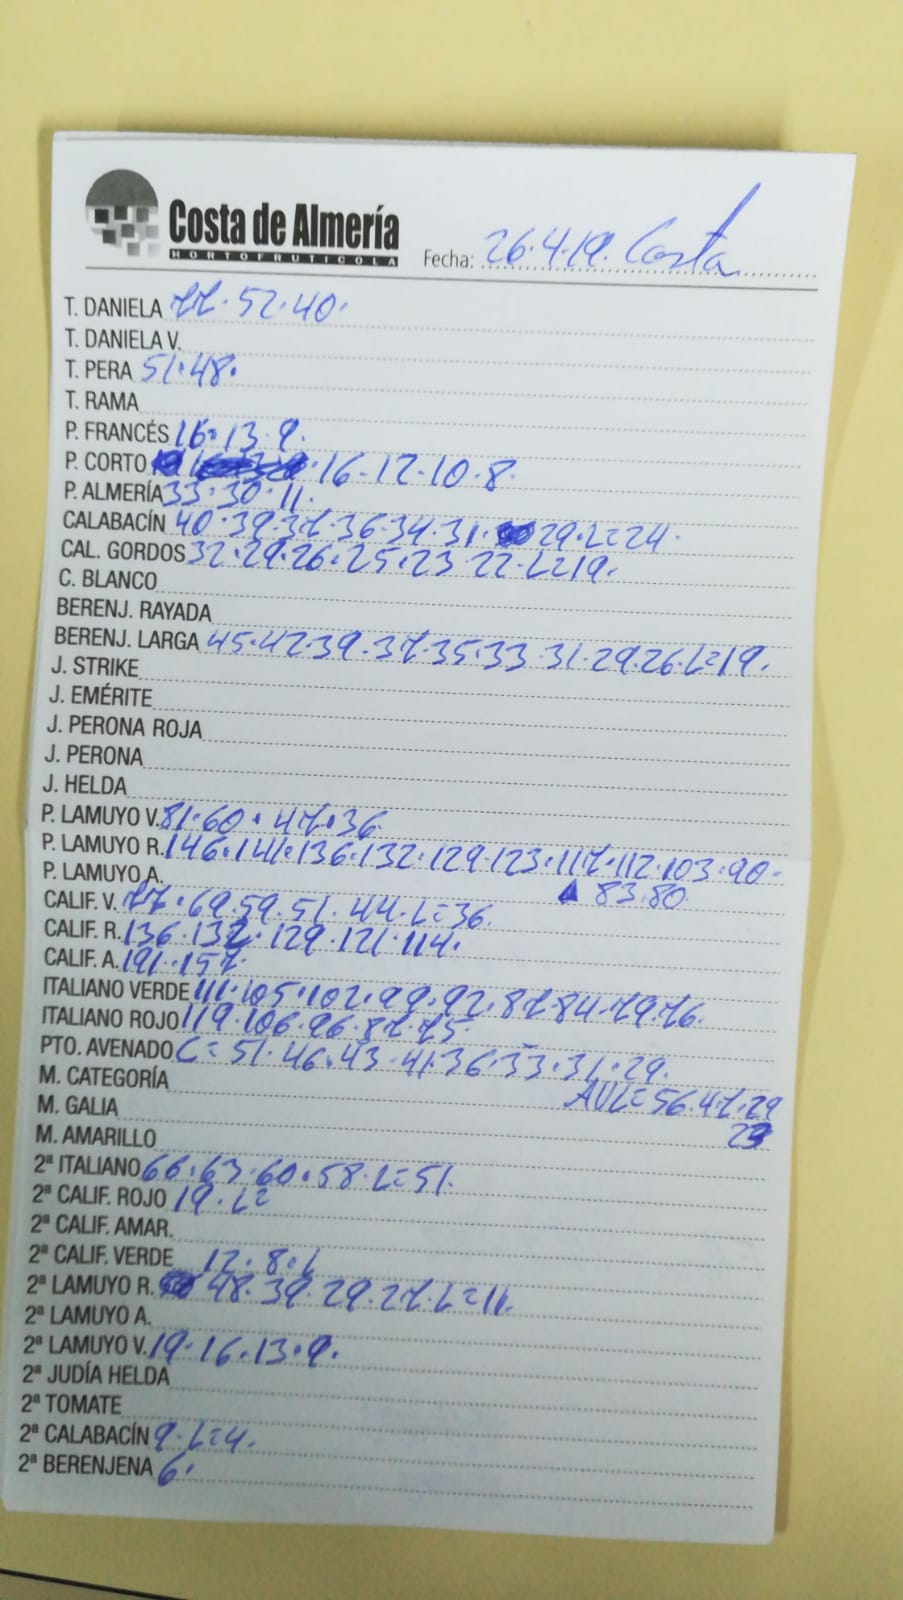 Costa de Almería
HORTOFRUTICOLA
Fecha: 26.4.19. Costa
T. DANIELA 77.52.40.
T. DANIELA V.
T. PERA 51.48.
T. RAMA
P. FRANCÉS 16.13.9.
P. CORTO .16-12.10.8.
P. ALMERÍA 33.30.11.
CALABACÍN 40.39.37.36.34.31. 29.L=24.
CAL. GORDOS 32.29.26.25.23 22.L=19.
C. BLANCO
BERENJ. RAYADA
BERENJ. LARGA 45.42.39.37.35.33.31.29.26.L=19.
J. STRIKE
J. EMÉRITE
J. PERONA ROJA
J. PERONA
J. HELDA
P. LAMUYO V. 81.60.47.36.
P. LAMUYO R. 146.141.136.132.129.123.117.112.103.90.
P. LAMUYO A. 83.80.
CALIF. V. 77.69.59.51.44.L=36.
CALIF. R. 136.132.129.121.114.
CALIF. A. 191.157.
ITALIANO VERDE 111.105.102.99.92.87.84.79.76.
ITALIANO ROJO 119.106.96.87.75.
PTO. AVENADO C=51.46.43.41.36.33.31.29.
M. CATEGORÍA AVL=56.47.29
M. GALIA
M. AMARILLO
2ª ITALIANO 66.63.60.58.L=51.
2ª CALIF. ROJO 19.L=
2ª CALIF. AMAR.
2ª CALIF. VERDE 12.8.L
2ª LAMUYO R. 48.39.29.27.L=11.
2ª LAMUYO A.
2ª LAMUYO V. 19.16.13.9.
2ª JUDÍA HELDA
2ª TOMATE
2ª CALABACÍN 9.L=4.
2ª BERENJENA 6.